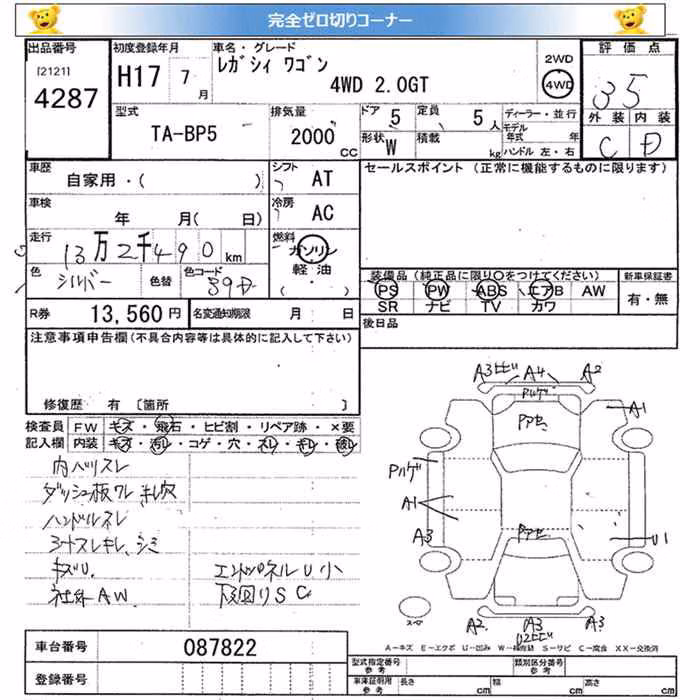 完全ゼロ切りコーナー
出品番号 初度登録年月 車名・グレード 評価点
[2121] 4287 H17 7月 レガシィ ワゴン 2WD
4WD 2.0GT 4WD 35
型式 排気量 ドア 定員 ディーラー・並行 外装 内装
TA-BP5 2000CC 5 5人 モデル年式 年 C D
形状 W 積載 kg ハンドル 左・右
車歴 シフト セールスポイント (正常に機能するものに限ります)
自家用・( ) AT
車検 冷房
年 月( 日) AC
走行 燃料
13万2千490km ガソリン
軽油
色 色替 色コード 装備品 (純正品に限り○をつけてください) 新車保証書
シルバー 39D PS PW ABS エアB AW 有・無
SR ナビ TV カワ
R券 13,560円 名変通知期限 月 日 後日品
注意事項申告欄(不具合内容等は具体的に記入して下さい)
修復歴 有 〔箇所 〕
検査員 FW キズ・飛石・ヒビ割・リペア跡・×要
記入欄 内装 キズ・汚レ・コゲ・穴・スレ・キレ・破レ
内ハリスレ
ダッシュ板ワレ キレ穴
ハンドルスレ
シートスレキレ、シミ
キズU エンドパネルU小
社外AW 下回りSC
A3ヒビ A4 A2
ハルゲ
Pアセ
A1
Pハゲ
A1
A3
Pアセ
U1
スペア
A2 A3 A3
U2ヒビ
A-キズ E-エクボ U-凹ミ W-補修跡 S-サビ C-腐食 XX-交換済
車台番号 087822
登録番号
型式指定番号 参考 類別区分番号 参考
車庫証明用 参考 長さ cm 幅 cm 高さ cm